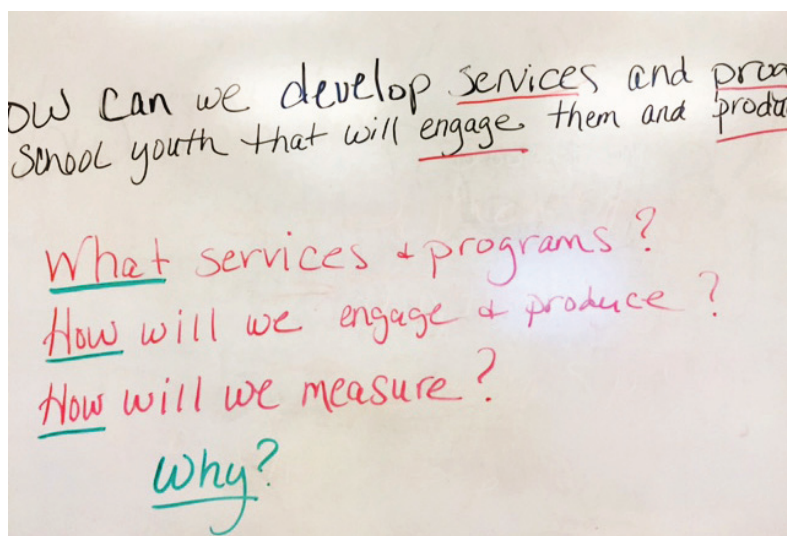 ow can we develop services and prog
school youth that will engage them and produ
What services & programs?
How will we engage & produce?
How will we measure?
Why?